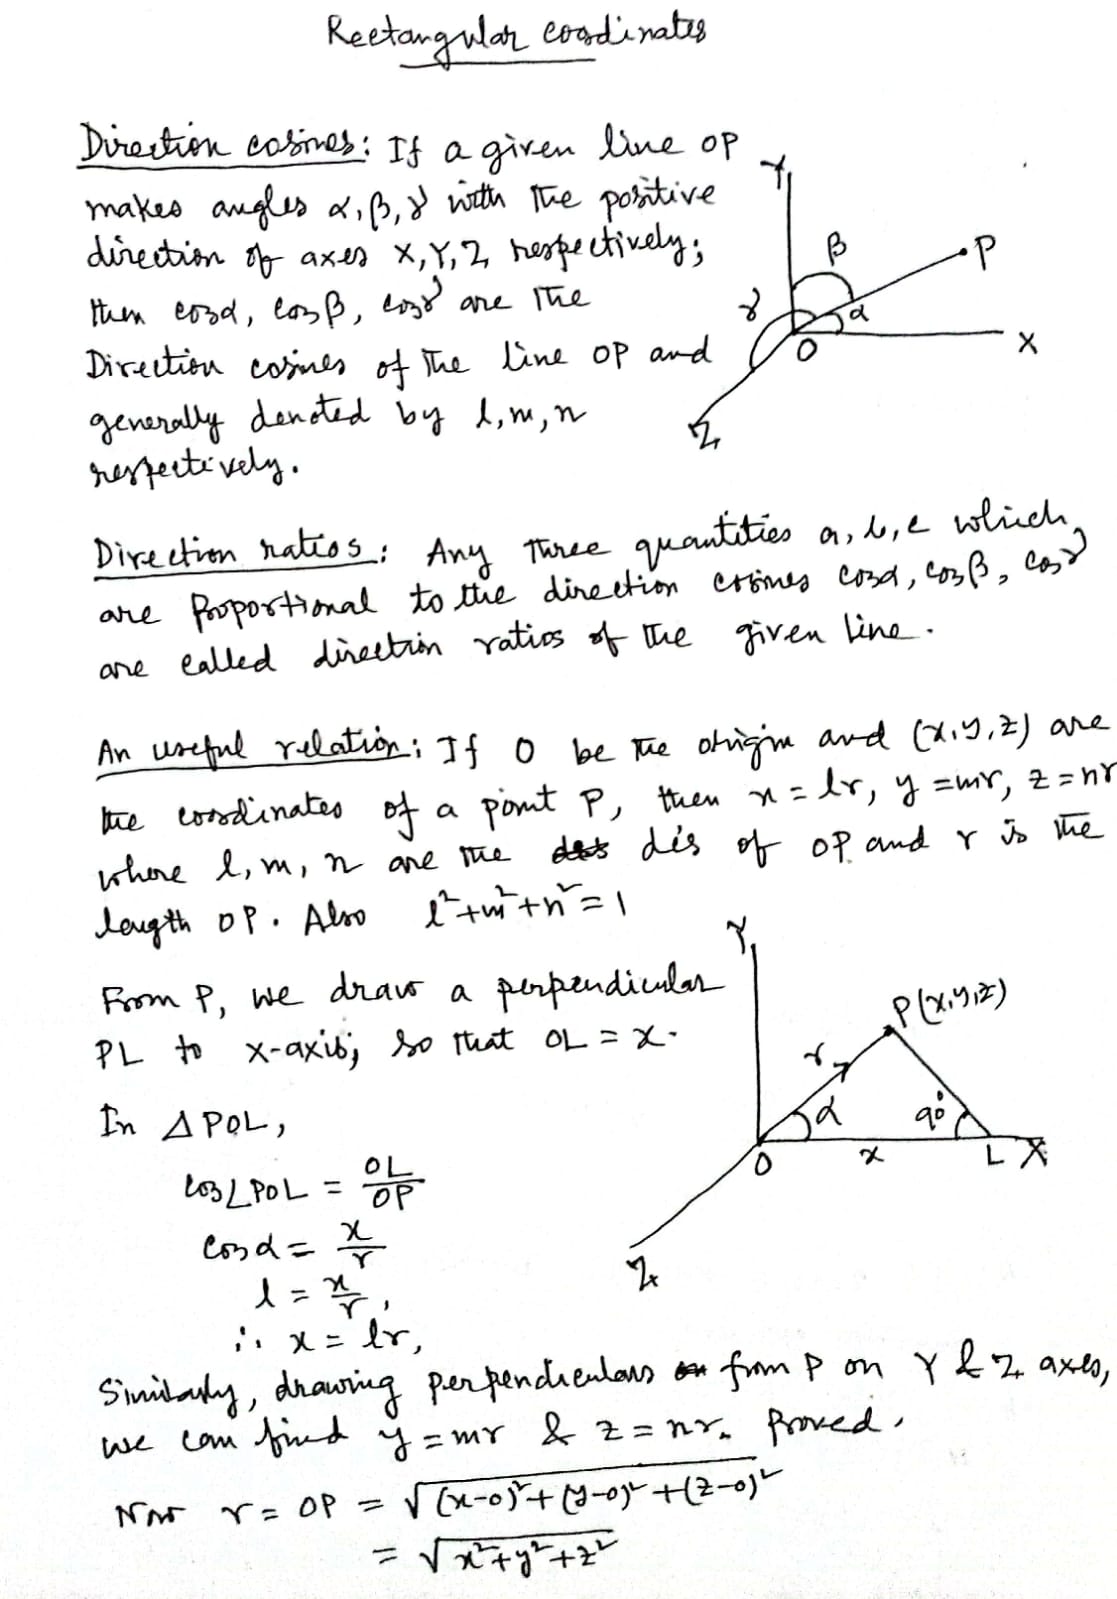 Rectangular coordinates
Direction cosines: If a given line OP
makes angles α, β, γ with the positive
direction of axes X, Y, Z respectively;
then cosα, cosβ, cosγ are the
Direction cosines of the line OP and
generally denoted by l, m, n
respectively.
Y
β
P
γ
α
O
X
Z
Direction ratios: Any three quantities a, b, c which
are proportional to the direction cosines cosα, cosβ, cosγ
are called direction ratios of the given line.
An useful relation: If O be the origin and (x, y, z) are
the coordinates of a point P, then x = lr, y = mr, z = nr
where l, m, n are the dcs of OP and r is the
length OP. Also l²+m²+n² = 1
From P, we draw a perpendicular
PL to x-axis; so that OL = x.
In Δ POL,
cos∠POL = OL/OP
cosα = x/r
l = x/r,
∴ x = lr,
Y
P(x,y,z)
r
α
90°
O
x
L X
Z
Similarly, drawing perpendiculars from P on Y & Z axes,
we can find y = mr & z = nr. Proved.
Now r = OP = √(x-0)²+(y-0)²+(z-0)²
= √x²+y²+z²